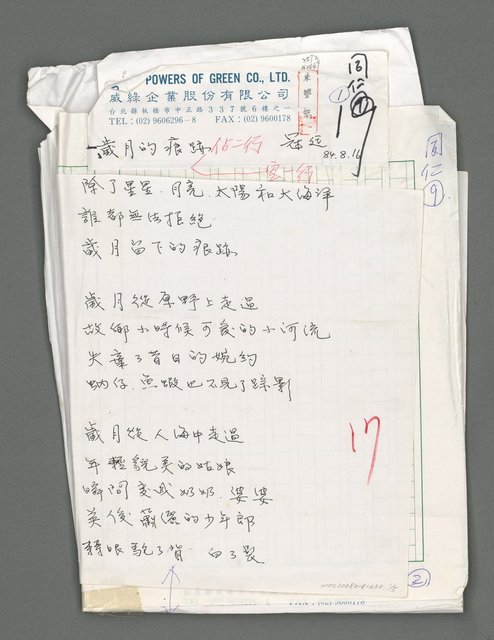 POWERS OF GREEN CO., LTD.
葳綠企業股份有限公司
台北縣板橋市中正路337號6樓之一
TEL：(02) 9606296-8 FAX：(02) 9600178
同仁
①
17
同仁
9
歲月的痕跡 佔二行
84.8.16
空一行
除了星星、月亮、太陽和大海洋
誰都無法拒絕
歲月留下的痕跡
歲月從原野上走過
故鄉小時候可愛的小河流
失棄了昔日的婉約
蚋仔、魚蝦也不見了踪影
歲月從人海中走過
年輕貌美的姑娘
瞬間變成奶奶、婆婆
英俊瀟灑的少年郎
轉眼駝了背 白了髮
17
NMTL20080181630 1/3
②
FAX：(02) 9600178